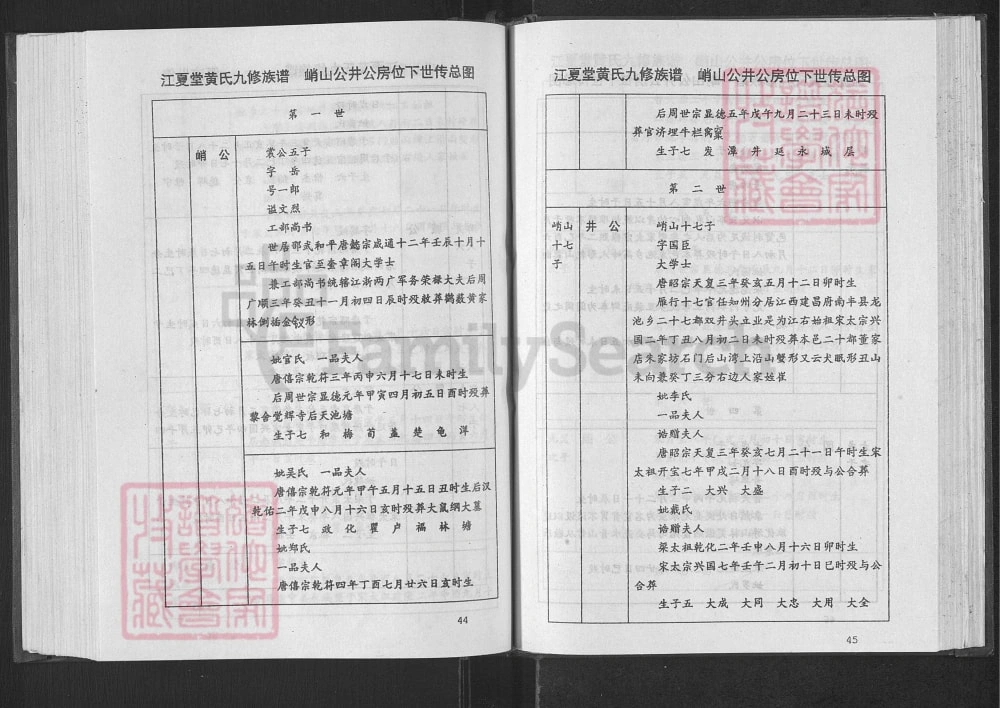 江夏堂黄氏九修族谱　峭山公井公房位下世传总图
第一世
峭公
裳公五子
字岳
号一郎
谥文烈
工部尚书
世居邵武和平唐懿宗咸通十二年壬辰十月十
五日午时生官至奎章阁大学士
兼工部尚书统辖江浙两广军务荣禄大夫后周
广顺三年癸丑十一月初四日辰时殁敕葬鹳薮黄家
林倒插金钗形
妣官氏　一品夫人
唐僖宗乾符三年丙申六月十七日未时生
后周世宗显德元年甲寅四月初五日酉时殁葬
黎舍觉辉寺后天池塘
生子七　和　梅　荀　盖　楚　龟　洋
妣吴氏　一品夫人
唐僖宗乾符元年甲午五月十五日丑时生后汉
乾佑二年戊申八月十六日亥时殁葬大鼠纲大墓
生子七　政　化　瞿　卢　福　林　塘
妣郑氏
一品夫人
唐僖宗乾符四年丁酉七月廿六日亥时生
44
江夏堂黄氏九修族谱　峭山公井公房位下世传总图
后周世宗显德五年戊午九月二十三日未时殁
葬官济埋牛栏窝窠
生子七　发　潭　井　延　永　城　层
第二世
峭山
十七
子
井公
峭山十七子
字国臣
大学士
唐昭宗天复三年癸亥五月十二日卯时生
雁行十七官任知州分居江西建昌府南丰县龙
池乡二十七都双井头立业是为江右始祖宋太宗兴
国二年丁丑八月初二日未时殁葬本邑二十都董家
店朱家坊石门后山湾上沿山蟹形又云犬眠形丑山
未向兼癸丁三分右边人家姓崔
妣李氏
一品夫人
诰赠夫人
唐昭宗天复三年癸亥七月二十一日午时生宋
太祖开宝七年甲戌二月十八日酉时殁与公合葬
生子二　大兴　大盛
妣戴氏
诰赠夫人
梁太祖乾化二年壬申八月十六日卯时生
宋太宗兴国七年壬午二月初十日巳时殁与公
合葬
生子五　大成　大同　大忠　大用　大全
45
FamilySearch